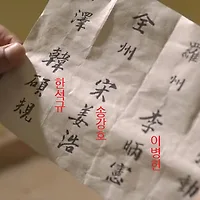 羅
州
李炳憲
이병헌
全州
宋姜浩
송강호
澤
韓碩規
한석규